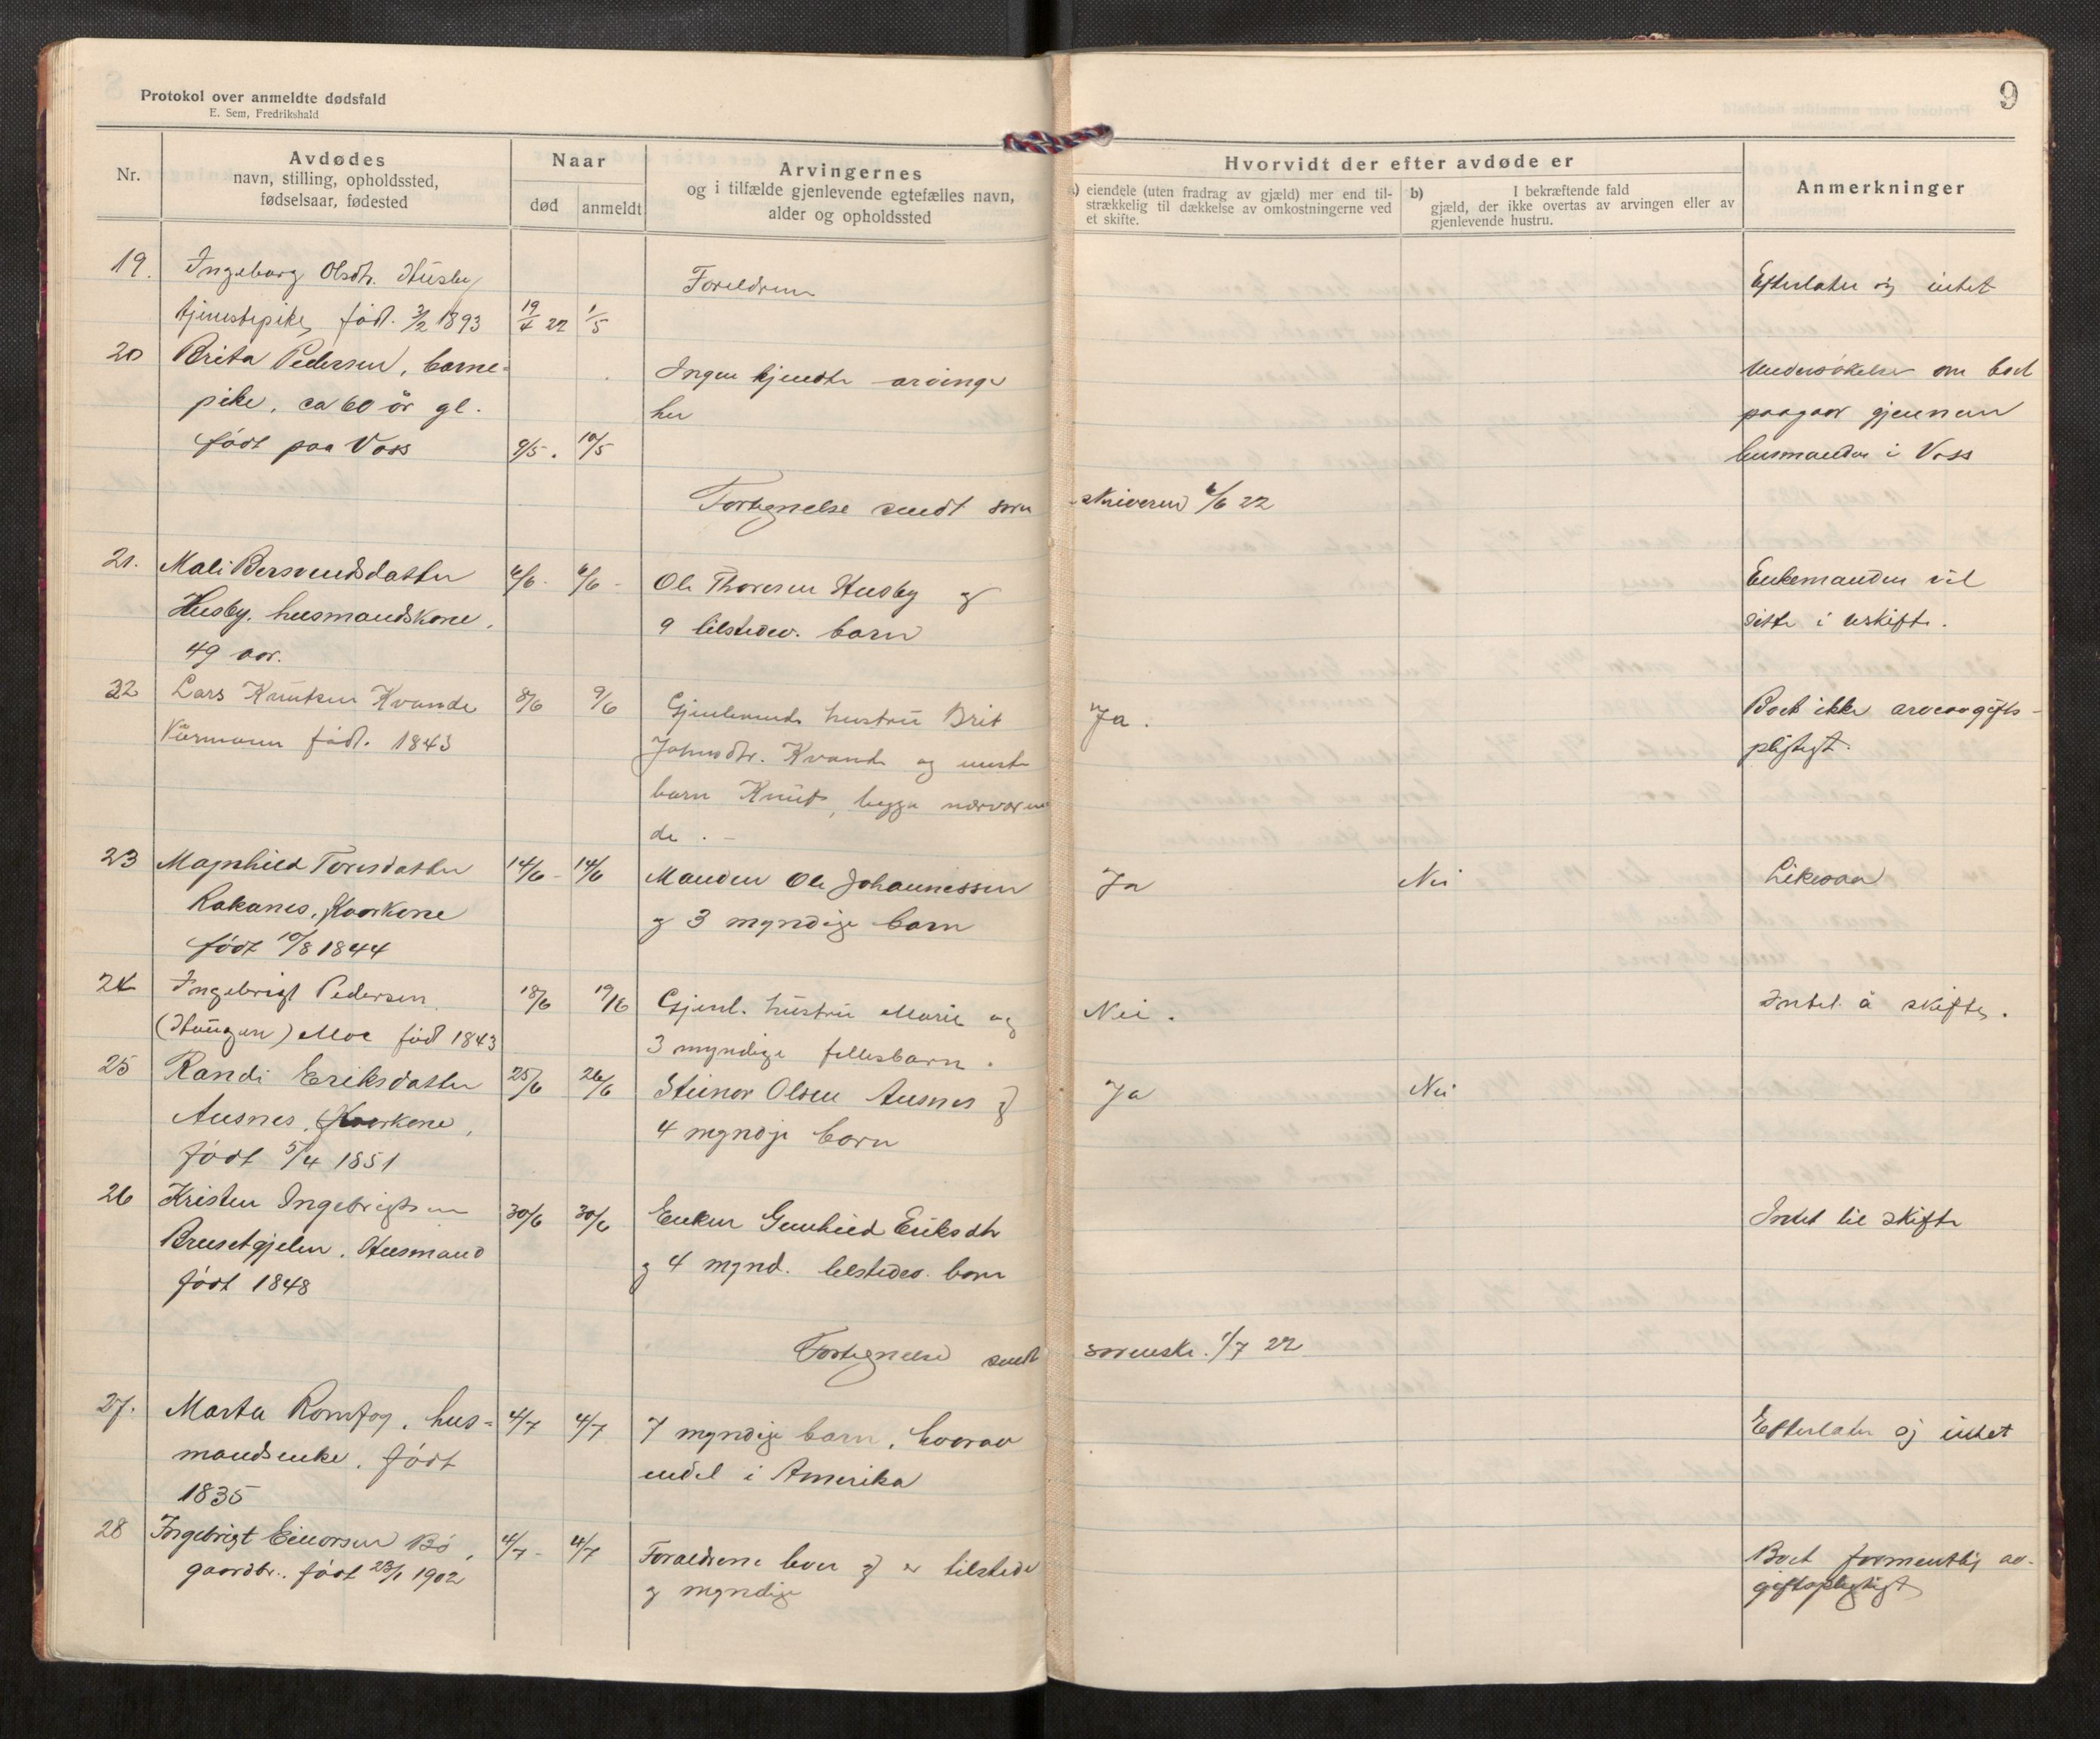 Protokol over anmeldte dødsfald
E. Sem, Fredrikshald
9
Nr.
Avdødes
navn, stilling, opholdssted,
fødselsaar, fødested
Naar
død
anmeldt
Arvingernes
og i tilfælde gjenlevende egtefælles navn,
alder og opholdssted
Hvorvidt der efter avdøde er
a) eiendele (uten fradrag av gjæld) mer end til-
strækkelig til dækkelse av omkostningerne ved
et skifte.
b) I bekræftende fald
gjæld, der ikke overtas av arvingen eller av
gjenlevende hustru.
Anmerkninger
19. Ingeborg Olsdtr. Husby Foreldrene Efterlater sig intet
tjenestepike, født. 3/2 1893 19/4 22 1/5
20 Brita Pedersen, barne- Ingen kjendte arvinge Undersøkelse om boet
pike, ca 60 år gl. her paagaar gjennem
født paa Voss 9/5. 10/5 lensmanden i Voss
Fortegnelse sendt soren skriveren 6/6 22
21. Mali Bersvendsdatter 6/6- 6/6- Ole Thoresen Husby og Enkemanden vil
Husby, husmandskone, 9 tilstedev. barn sitte i uskifte.
49 aar.
22 Lars Knutsen Kvande 8/6 9/6 Gjenlevende hustru Brit Ja. Boet ikke arveavgifts-
Kårmann født. 1843 Johnsdtr. Kvande og eneste pligtigt.
barn Knut, begge nærværen
de.-
23 Magnhild Toresdatter 14/6- 14/6 Manden Ole Johannessen Ja Nei Likesaa
Rakanes, Kaarkone og 3 myndige barn
født 10/8 1844
24 Ingebrigt Pedersen 18/6 19/6 Gjenl. hustru Marie og Nei. Intet å skifte.
(Haugen) Moe født 1843 3 myndige fellesbarn.
25 Randi Eriksdatter 25/6 26/6 Steinar Olsen Ausnes og Ja Nei
Ausnes, Kaarkone, 4 myndige barn
født 5/4 1851
26 Kristen Ingebrigtsen 30/6 30/6 Enken Gunhild Eriksdtr Intet til skifte
Brusetgjelen, Husmand og 4 mynd. tilstedev. barn
født 1848
Fortegnelse sendt sorenskr. 1/7 22
27. Marta Romfog, hus- 4/7 4/7 7 myndige barn, hvorav Efterlater sig intet
mandsenke, født endel i Amerika
1835
28 Ingebrigt Einarsen Bö, 4/7- 4/7 Foraeldrene lever og er tilstede Boet formentlig av-
gaardbr., født 23/1 1902 og myndige giftspligtigt